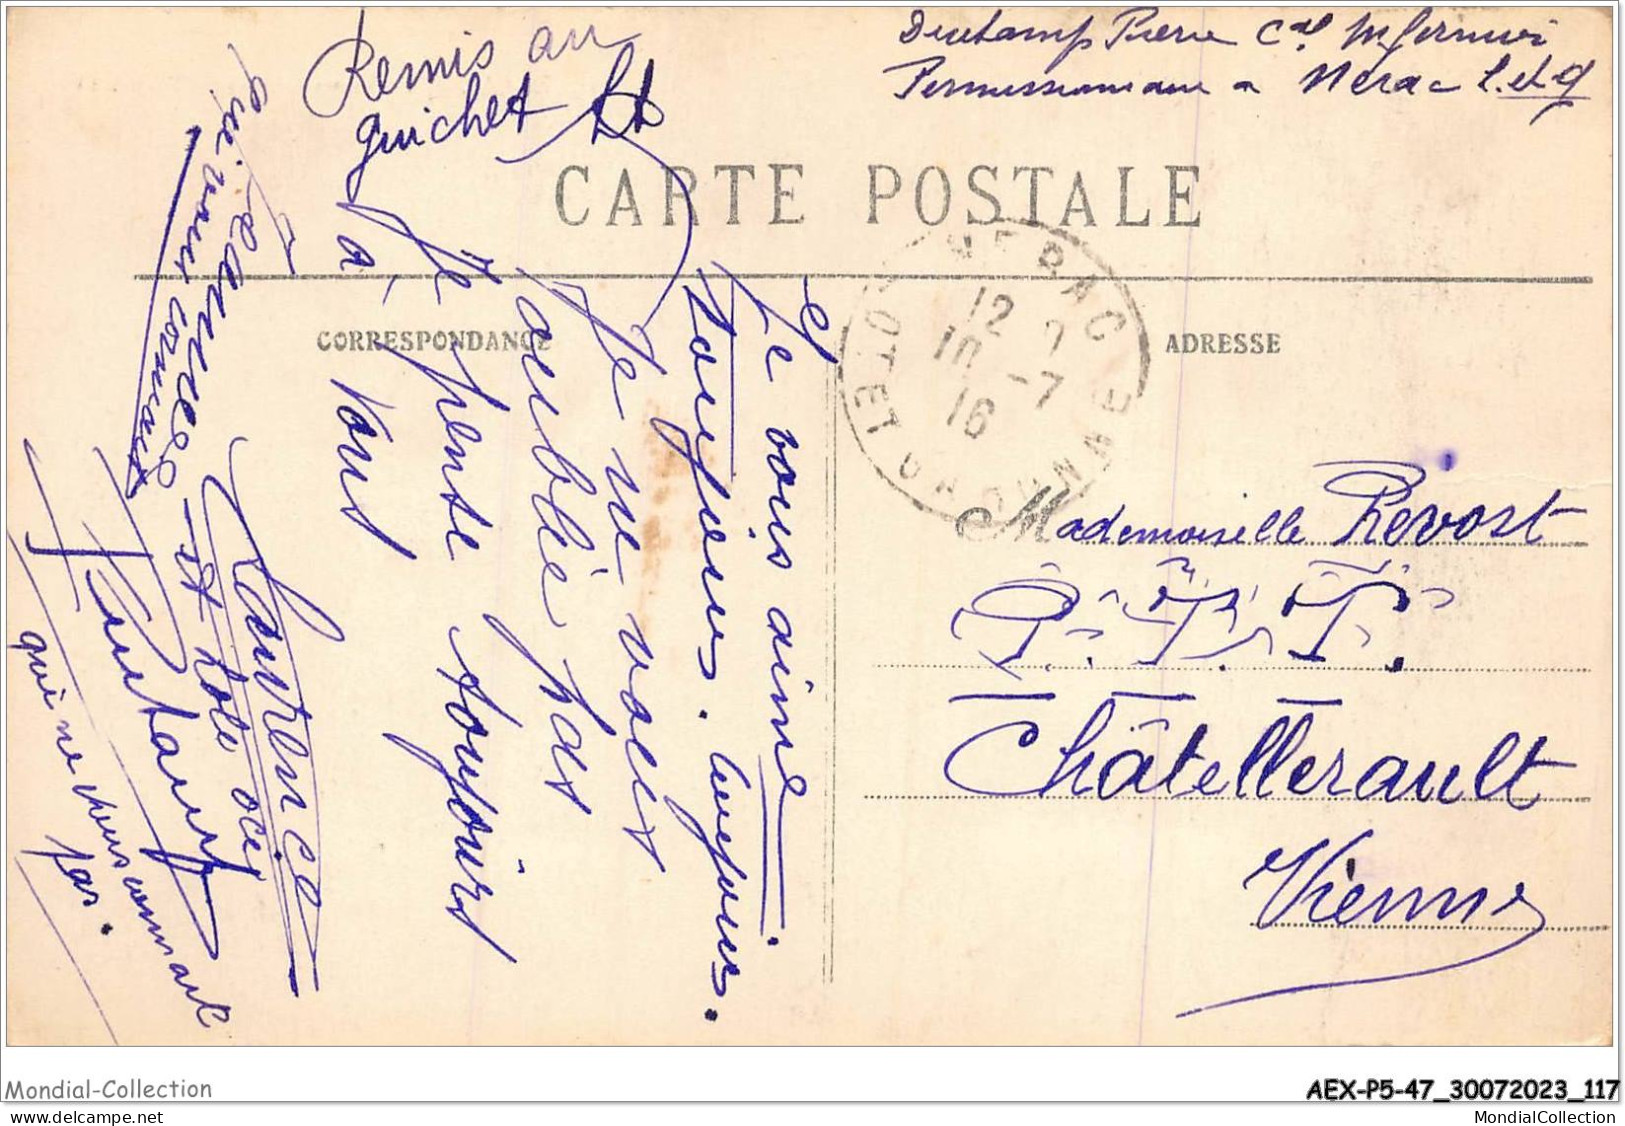 Remis au
guichet
Duchamp Pierre Cal Infirmier
Permissionnaire a Nerac L. et G
CARTE POSTALE
CORRESPONDANCE
ADRESSE
NERAC
LOT ET GARONNE
12
10 -7
16
Je vous aime
toujours. toujours.
Je ne vous
oublie pas
Je pense toujours
à vous
Laurence
qui vous connait
qui ne vous connait
pas.
Mademoiselle Prevost
P. T. T.
Châtellerault
Vienne
Mondial-Collection
AEX-P5-47_30072023_117
www.delcampe.net
MondialCollection